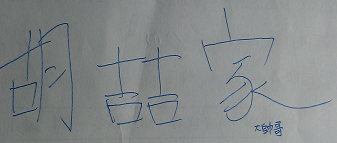 胡喆家
大帥哥